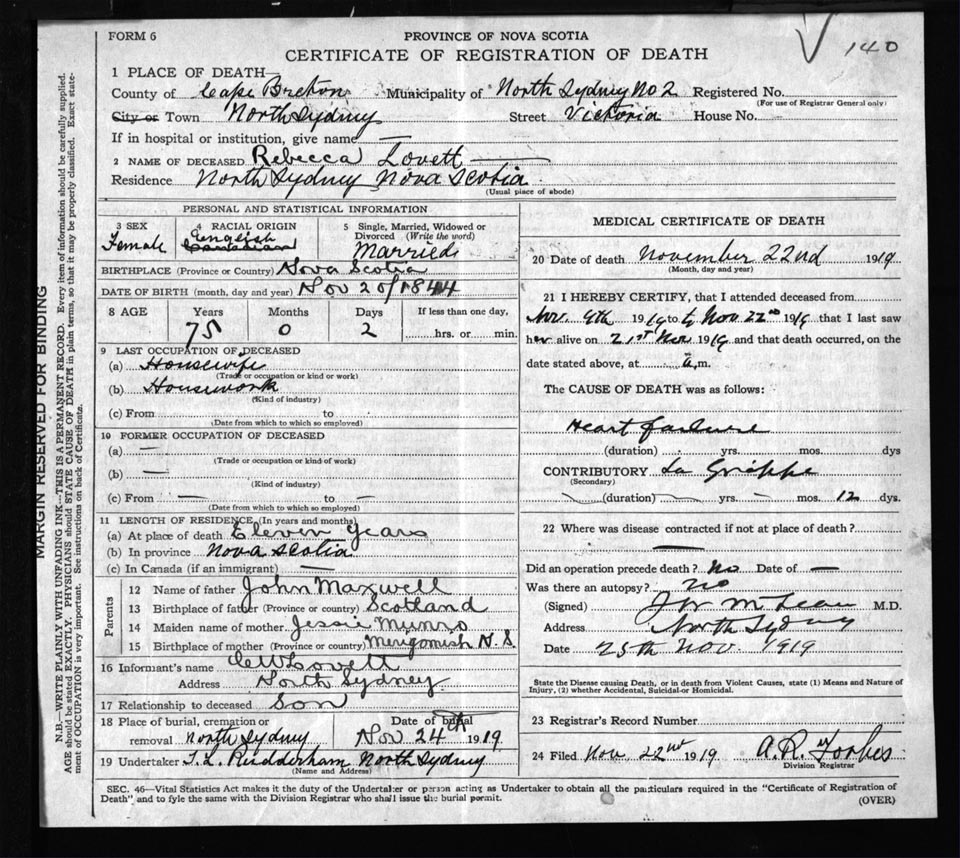 FORM 6
PROVINCE OF NOVA SCOTIA
CERTIFICATE OF REGISTRATION OF DEATH
140
1 PLACE OF DEATH—
County of Cape Breton Municipality of North Sydney No 2 Registered No.
(For use of Registrar General only)
City or Town North Sydney Street Victoria House No.
If in hospital or institution, give name —
2 NAME OF DECEASED Rebecca Lovett
Residence North Sydney Nova Scotia
(Usual place of abode)
PERSONAL AND STATISTICAL INFORMATION
3 SEX Female
4 RACIAL ORIGIN English
5 Single, Married, Widowed or Divorced (Write the word) Married
BIRTHPLACE (Province or Country) Nova Scotia
DATE OF BIRTH (month, day and year) Nov 20/1844
8 AGE Years Months Days If less than one day,
75 0 2 hrs. or min.
9 LAST OCCUPATION OF DECEASED
(a) Housewife
(Trade or occupation or kind or work)
(b) Housework
(Kind of industry)
(c) From to
(Date from which to which so employed)
10 FORMER OCCUPATION OF DECEASED
(a) —
(Trade or occupation or kind of work)
(b) —
(Kind of industry)
(c) From — to —
(Date from which to which so employed)
11 LENGTH OF RESIDENCE (In years and months)
(a) At place of death Eleven years
(b) In province Nova Scotia
(c) In Canada (if an immigrant) —
Parents
12 Name of father John Maxwell
13 Birthplace of father (Province or country) Scotland
14 Maiden name of mother Jessie Munro
15 Birthplace of mother (Province or country) Merigomish N.S
16 Informant's name C W Lovett
Address North Sydney
17 Relationship to deceased Son
18 Place of burial, cremation or removal North Sydney
Date of burial Nov 24th 1919
19 Undertaker T. L. Rudderham North Sydney
(Name and Address)
MEDICAL CERTIFICATE OF DEATH
20 Date of death November 22nd 1919
(Month, day and year)
21 I HEREBY CERTIFY, that I attended deceased from
Nov. 9th 1919 to Nov 22nd 1919 that I last saw
her alive on 21st Nov. 1919 and that death occurred, on the
date stated above, at a,m.
The CAUSE OF DEATH was as follows:
Heart failure
(duration) yrs. mos. dys
CONTRIBUTORY La Grippe
(Secondary)
(duration) yrs. mos. 12 dys.
22 Where was disease contracted if not at place of death?
—
Did an operation precede death? No Date of —
Was there an autopsy? No
(Signed) J W McLean M.D.
Address North Sydney
Date 25th Nov. 1919
State the Disease causing Death, or in death from Violent Causes, state (1) Means and Nature of
Injury, (2) whether Accidental, Suicidal or Homicidal.
23 Registrar's Record Number
24 Filed Nov 22nd 1919 A. R. Forbes
Division Registrar
SEC. 46—Vital Statistics Act makes it the duty of the Undertaker or person acting as Undertaker to obtain all the particulars required in the "Certificate of Registration of
Death" and to fyle the same with the Division Registrar who shall issue the burial permit.
(OVER)
MARGIN RESERVED FOR BINDING
N.B.—WRITE PLAINLY WITH UNFADING INK—THIS IS A PERMANENT RECORD. Every item of information should be carefully supplied.
AGE should be stated EXACTLY. PHYSICIANS should STATE CAUSE OF DEATH in plain terms, so that it may be properly classified. Exact statement
of OCCUPATION is very important. See instructions on back of Certificate.